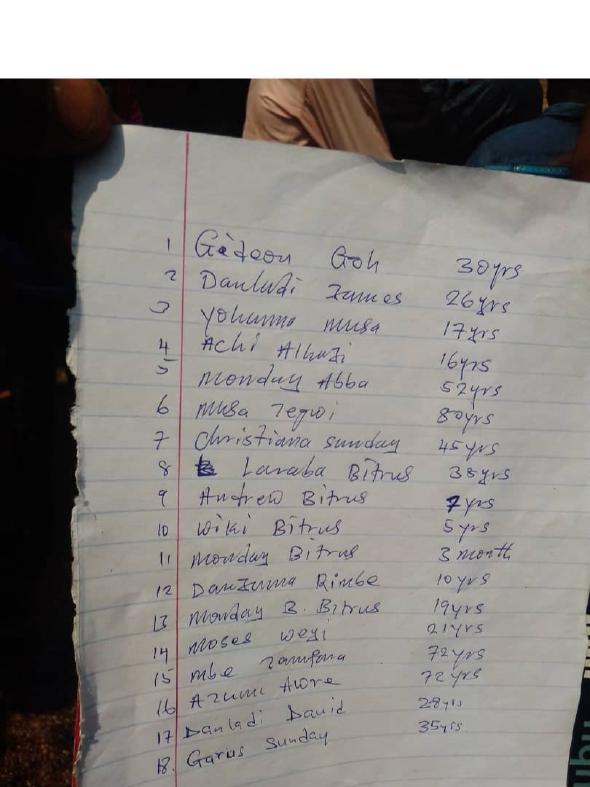 1 Gideon Goh 30yrs
2 Danladi James 26yrs
3 Yohanna Musa 17yrs
4 Achi Alhaji 16yrs
5 Monday Abba 52yrs
6 Musa Tegwi 80yrs
7 Christiana Sunday 45yrs
8 Laraba Bitrus 38yrs
9 Andrew Bitrus 7yrs
10 Wiki Bitrus 5yrs
11 Monday Bitrus 3 month
12 Danjuma Rimbe 10yrs
13 Monday B. Bitrus 19yrs
14 Moses Weyi 21yrs
15 Mbe Zamfara 72yrs
16 Azumi Awre 72yrs
17 Danladi David 28yrs
18. Garus Sunday 35yrs